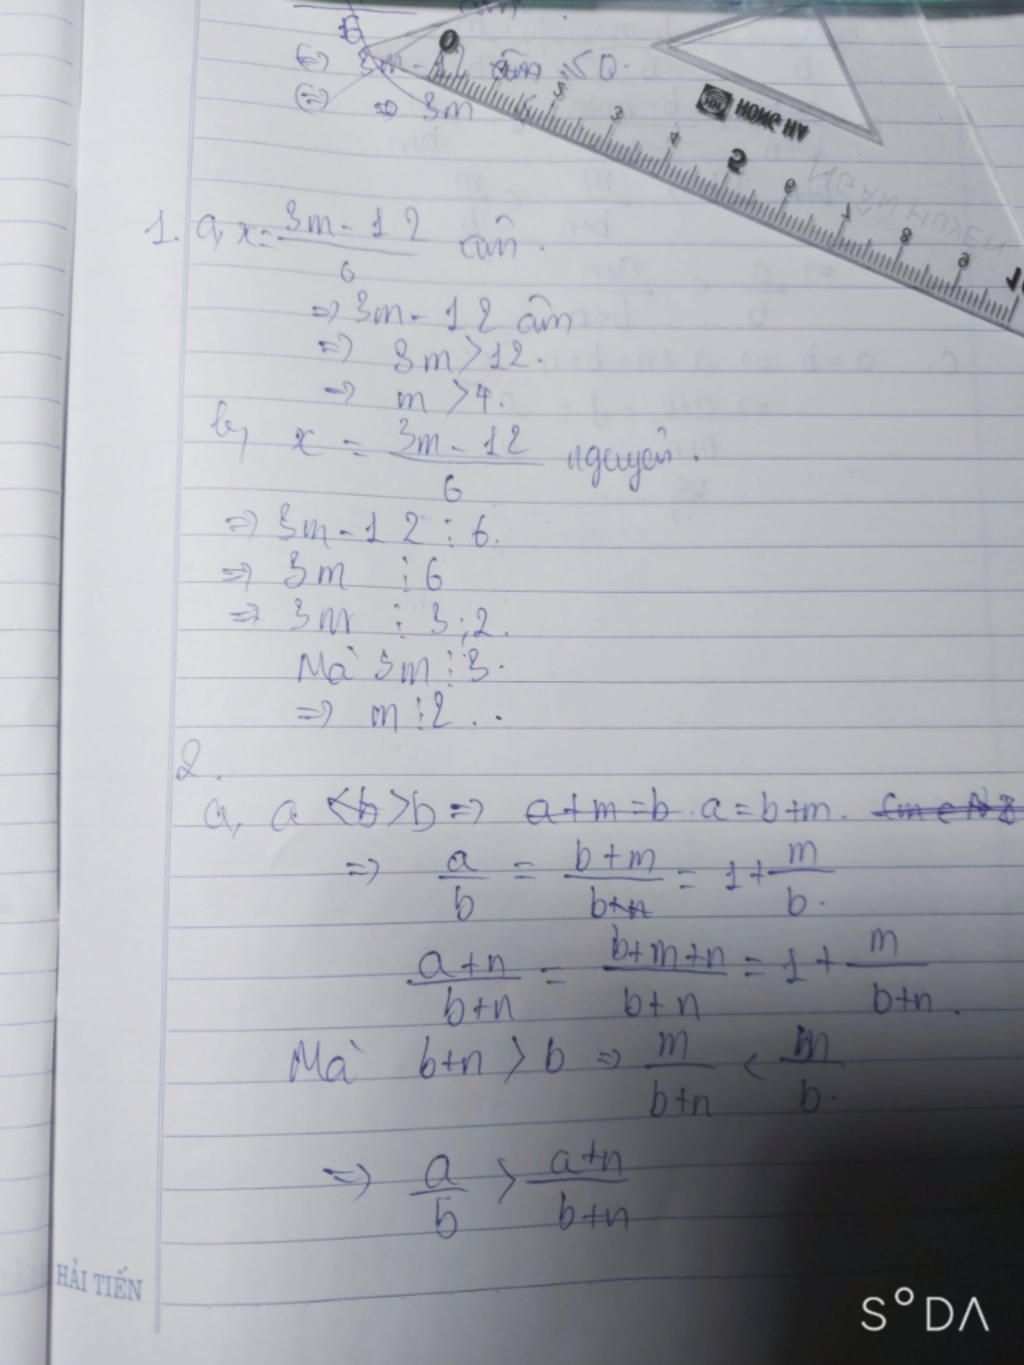 ⇔ 3m - 12 âm < 0.
⇒ 3m
HONG HA
NGÂN HUYỀN
1. a, x = \frac{3m - 12}{6} âm.
⇒ 3m - 12 âm
⇒ 3m > 12.
⇒ m > 4.
b, x = \frac{3m - 12}{6} nguyên.
⇒ 3m - 12 ⋮ 6.
⇒ 3m ⋮ 6
⇒ 3m ⋮ 3; 2.
Mà 3m ⋮ 3.
⇒ m ⋮ 2..
2.
a, a > b ⇒ a = b + m.
⇒ \frac{a}{b} = \frac{b + m}{b} = 1 + \frac{m}{b}.
\frac{a + n}{b + n} = \frac{b + m + n}{b + n} = 1 + \frac{m}{b + n}.
Mà b + n > b ⇒ \frac{m}{b + n} < \frac{m}{b}.
⇒ \frac{a}{b} > \frac{a + n}{b + n}
HẢI TIẾN
SODA